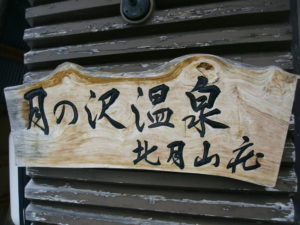 月の沢温泉
北月山荘